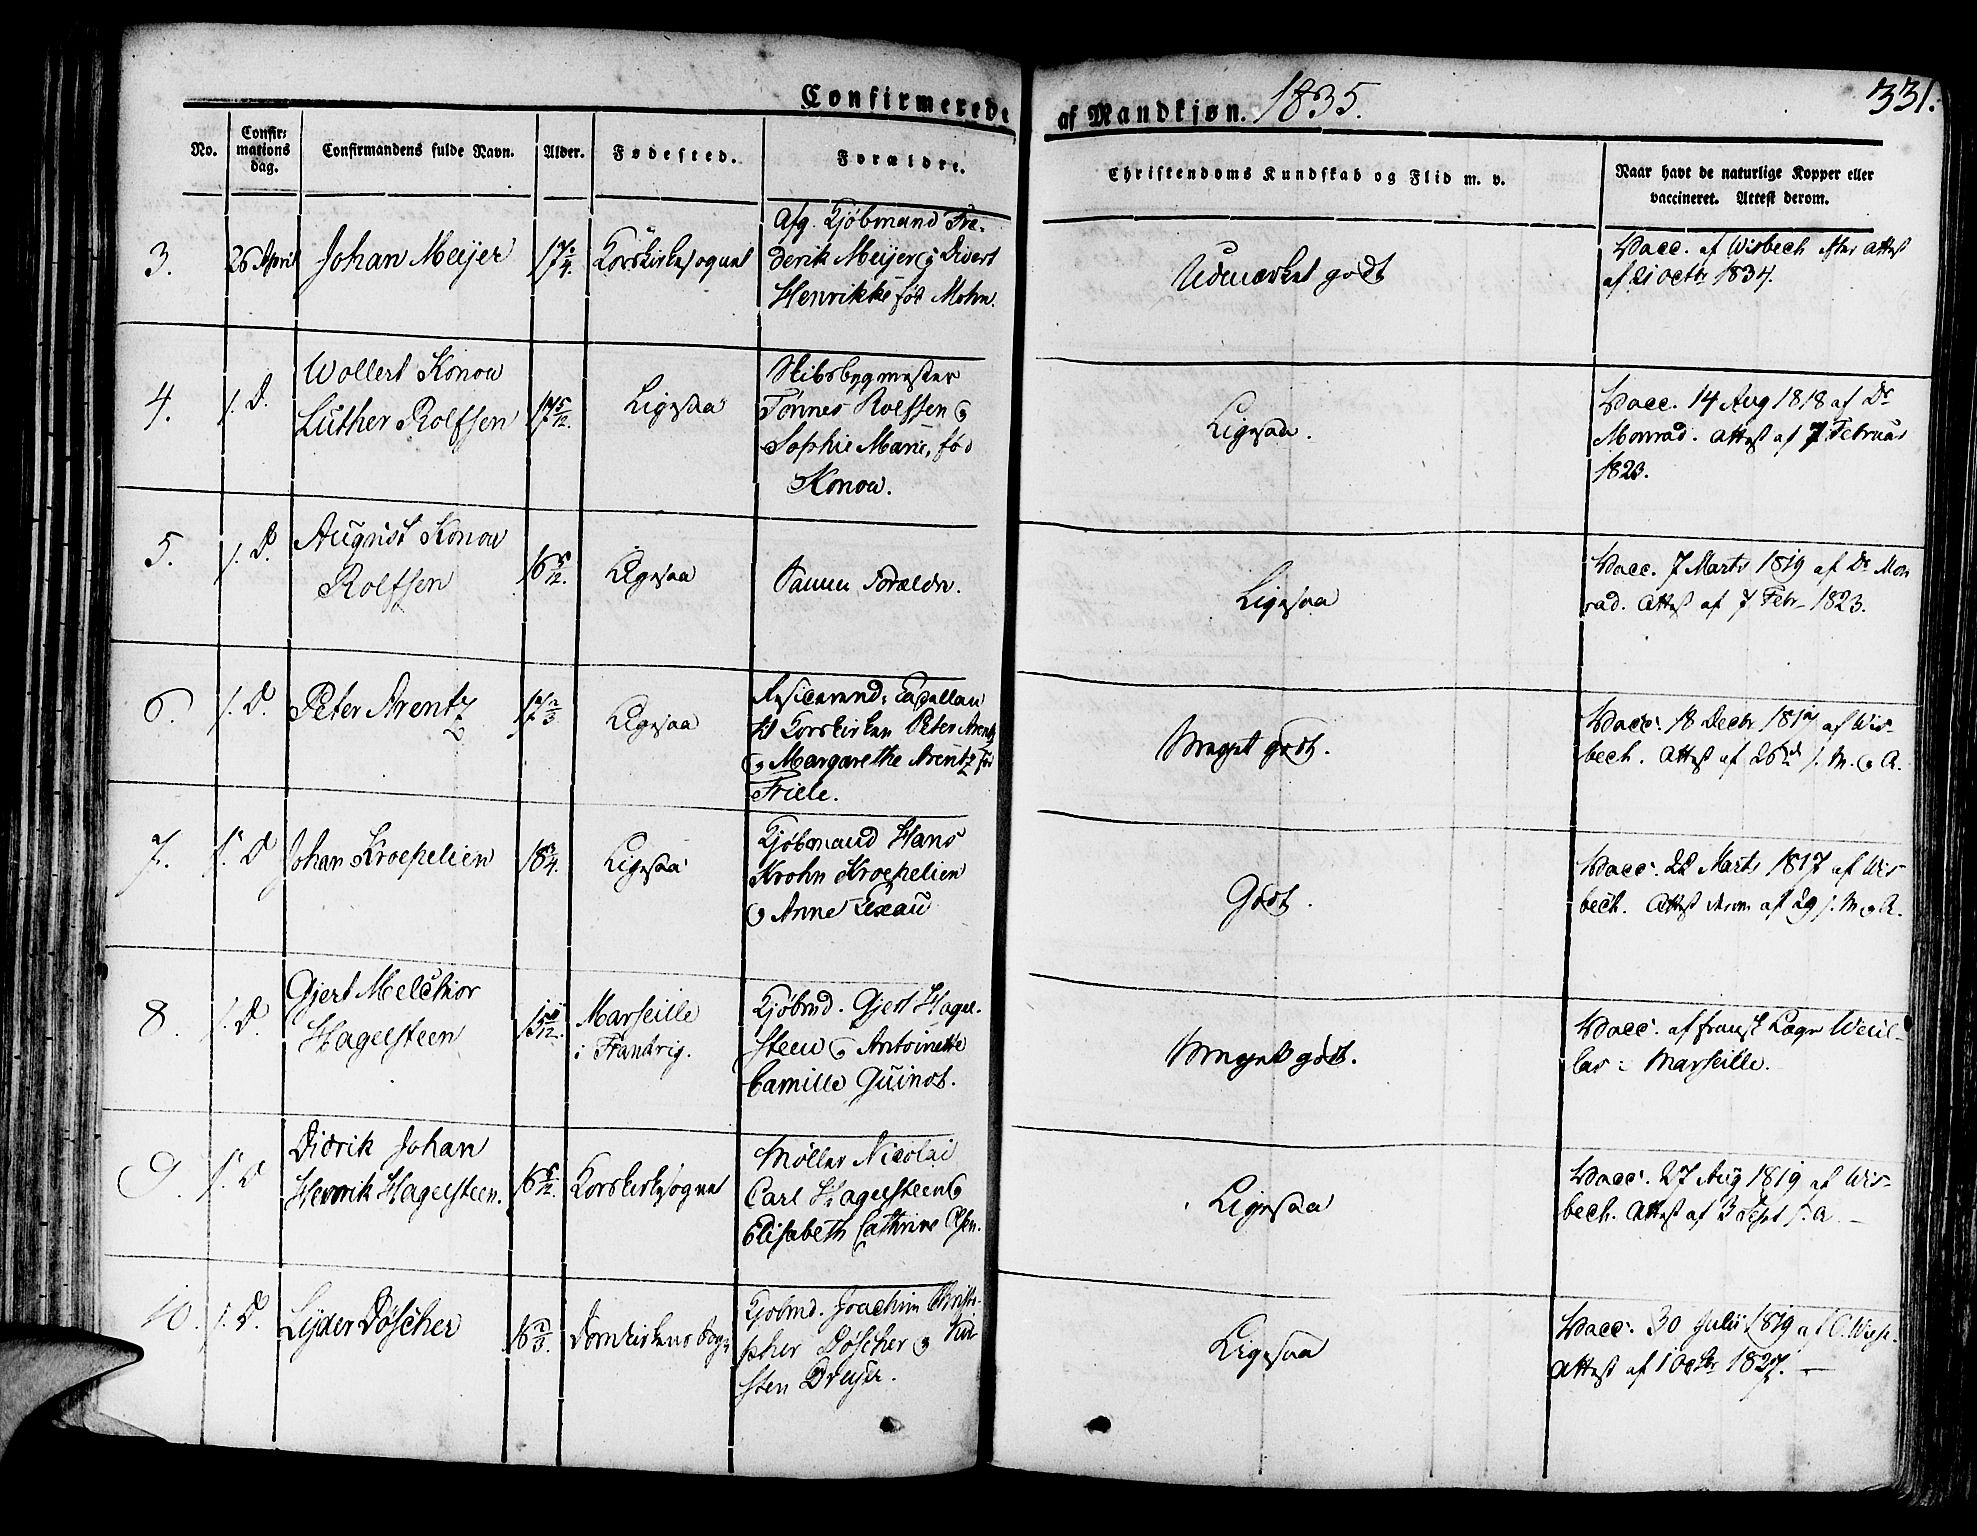 Confirmerede af Mandkjøn. 1835. 331.
No.
Confir:
mations
dag.
Confirmandens fulde Navn.
Alder.
Fødested.
Forældre.
Christendoms Kundskab og Flid m. v.
Naar havt de naturlige Kopper eller
vaccineret. Attest derom.
3.
26 April
Johan Meijer
Korskirkesognet
Afg. Kjøbmand Fre-
derik Meijer og Divert
Henrikke fød Mohn.
Udmærket godt
Vacc. af Wisbech efter Attest
af 21 Octbr 1834.
4.
s. D.
Wollert Konow
Luther Rolfsen
17 5/12.
Ligesaa
Skibsbygmester
Tønnes Rolfsen og
Sophie Marie, fød
Konow.
Ligesaa.
Vacc. 14 Aug 1818 af Dr
Monrad. Attest af 7 Februar
1823.
5.
s. D.
August Konow
Rolfsen
16 5/12.
Ligesaa
Samme Forældre.
Ligesaa
Vacc. 7 Marts 1819 af Dr Mon
rad. Attest af 7 Febr 1823.
6.
s. D.
Peter Arentz
17 2/3
Ligesaa
Residerende Capellan
til Korskirken Peter Arentz
og Margarethe Arentz før
Friele.
Meget godt.
Vacc. 18 Decbr 1817 af Wis-
bech. Attest af 26 d s. M. og A.
7.
s. D
Johan Kroepelien
18 1/4.
Ligesaa
Kjøbmand Hans
Krohn Kroepelien
og Anne Lexau
Godt.
Vacc. 22 Marts 1817 af Wis-
bech. Attest derom af 29 s. M. og A.
8.
s. D.
Gjert Melchior
Hagelsteen
Marseille
i Frankrig.
Kjøbmd. Gjert Hagel-
steen og Antoinette
Camille Guinot.
Meget godt.
Vacc. af fransk Læge
Marseille.
9.
s. D
Didrik Johan
Henrik Hagelsteen.
Korskirkesognet
Møller Nicolai
Carl Hagelsteen og
Elisabeth Cathrine Olsen.
Ligesaa
Vacc. 27 Aug 1819 af Wis-
bech. Attest af 3 Sept s. A. —
10.
s. D.
Lyder Döscher
16 2/3.
Domkirkens Sog:
Kjøbmd. Joachim Christo-
pher Döscher og Kir
sten Dreijer.
Ligesaa
Vacc. 30 Julii 1819 af C. Wisb.
Attest af 1 Octbr 1827. —